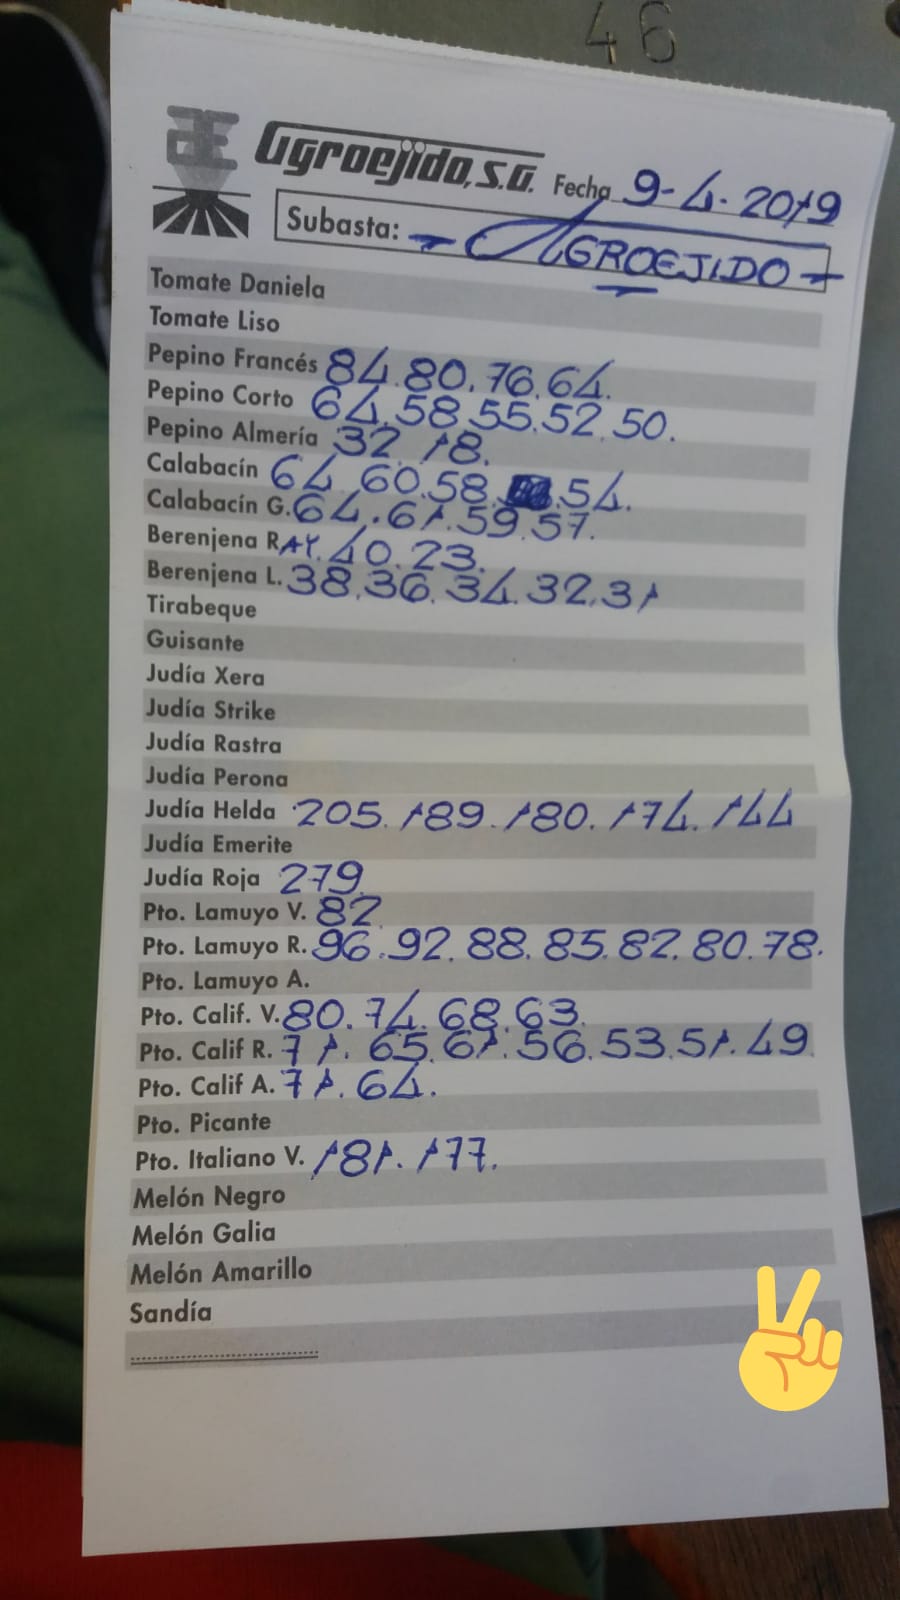 46
Agroejido, S.A. Fecha 9-4-2019
Subasta: - AGROEJIDO -
Tomate Daniela
Tomate Liso
Pepino Francés 84.80.76.64.
Pepino Corto 64.58.55.52.50.
Pepino Almería 32.18.
Calabacín 64.60.58. .54.
Calabacín G. 64.61.59.57.
Berenjena RAY. 40.23.
Berenjena L. 38.36.34.32.31
Tirabeque
Guisante
Judía Xera
Judía Strike
Judía Rastra
Judía Perona
Judía Helda 205.189.180.174.144
Judía Emerite
Judía Roja 279
Pto. Lamuyo V. 82
Pto. Lamuyo R. 96.92.88.85.82.80.78.
Pto. Lamuyo A.
Pto. Calif. V. 80.74.68.63.
Pto. Calif R. 71.65.61.56.53.51.49
Pto. Calif A. 71.64.
Pto. Picante
Pto. Italiano V. 181.177.
Melón Negro
Melón Galia
Melón Amarillo
Sandía